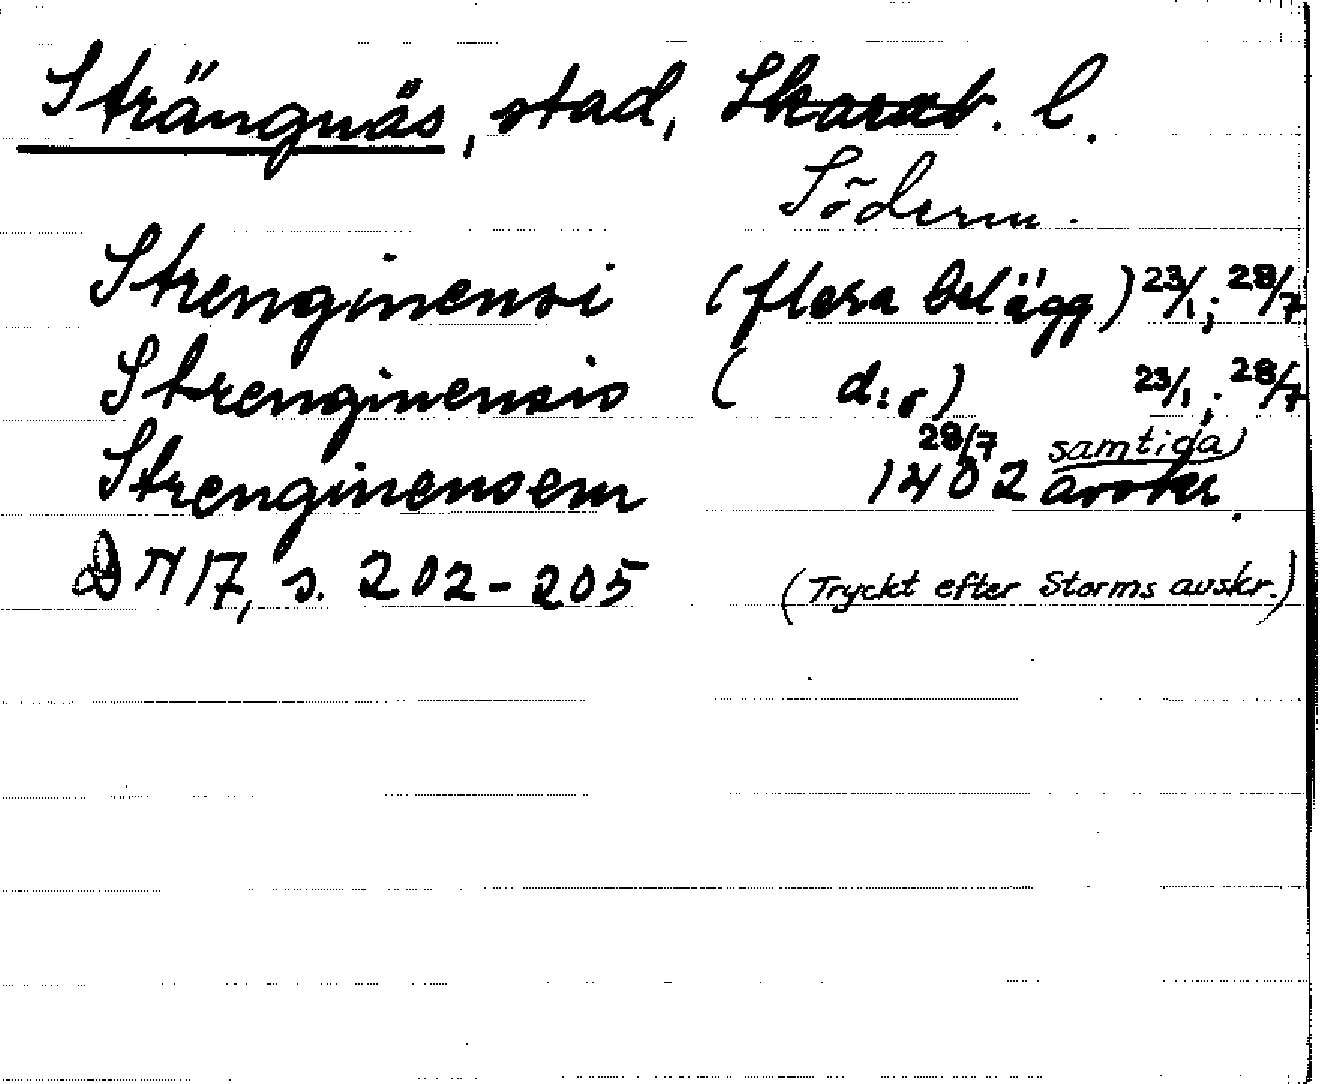 Strängnäs, stad, Skarab. l.
Söderm.
Strenginensi (flera belägg) 23/1; 28/7
Strenginensis ( d:o ) 23/1; 28/7
Strenginensem 28/7 1402 samtida) avskr.
DN 17, s. 202-205 (Tryckt efter Storms avskr.)